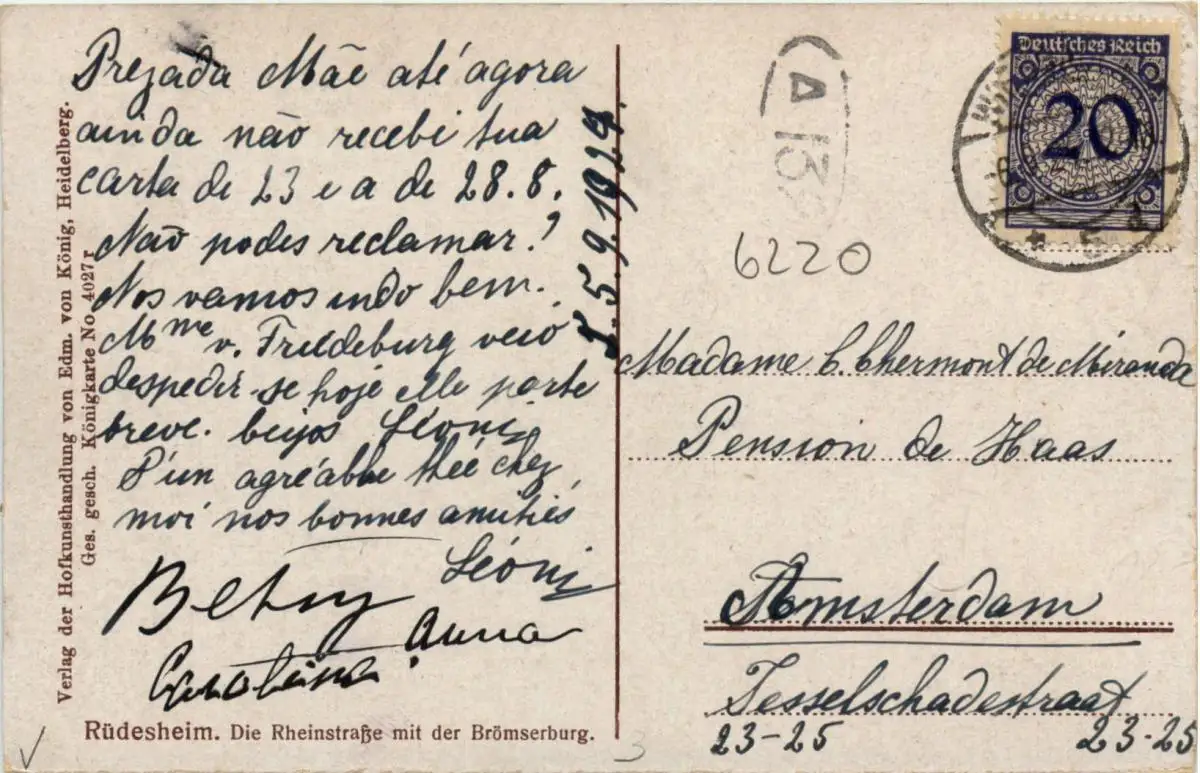 Prezada Mãe até agora
ainda não recebi tua
carta de 23 e a de 28.8.
Não podes reclamar?
Nos vamos indo bem.
Mme v. Freldeburg veio
despedir se hoje elle parte
breve. beijos Léoni
D'un agréable thée chez
moi nos bonnes amitiés
Léoni
Betsy
Anna
Carolina.
5.9.1924.
Verlag der Hofkunsthandlung von Edm. von König, Heidelberg.
Ges. gesch. Königkarte No. 4027r
Rüdesheim. Die Rheinstraße mit der Brömserburg.
A 13
6220
Deutsches Reich
20
Madame C. Chermont de Miranda
Pension de Haas
Amsterdam
Tesselschadestraat
23-25 23-25
3